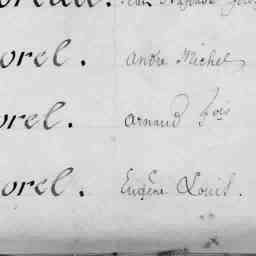 orel. andre Michel
orel. arnaud fois
orel. Eugène Louis.